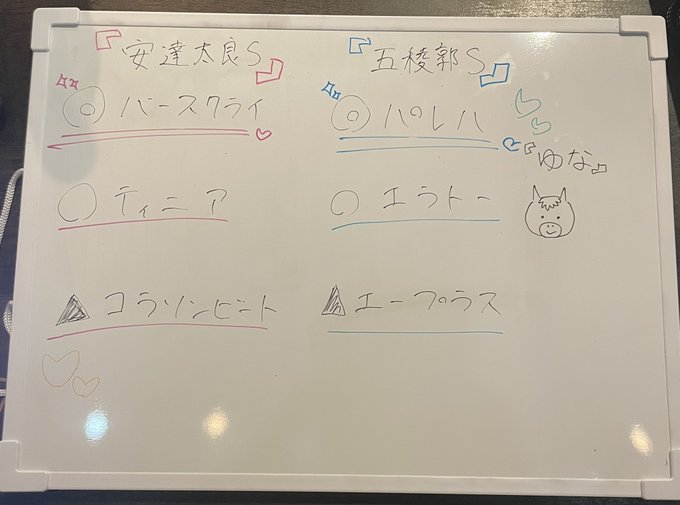 『安達太良S』
◎バースクライ
○ティニア
▲コラソンビート
『五稜郭S』
◎パレハ
○エラトー
▲エープラス
『ゆな』